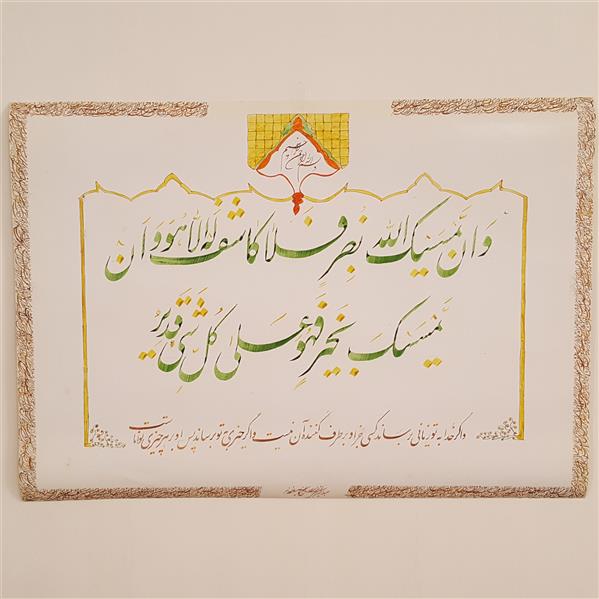 بسم الله الرحمن الرحیم
وَ اِنْ یَمْسَسْکَ اللّٰه بِضُرٍّ فَلا کاشِفَ لَهُ اِلّا هُوَ وَ اِنْ
یَمْسَسْکَ بِخَیْرٍ فَهُوَ عَلیٰ کُلِّ شَیْءٍ قَدیرٌ
و اگر خدا به تو زیانی رساند کسی جز او برطرف کننده آن نیست و اگر خیری به تو رساند پس او بر هر چیزی تواناست